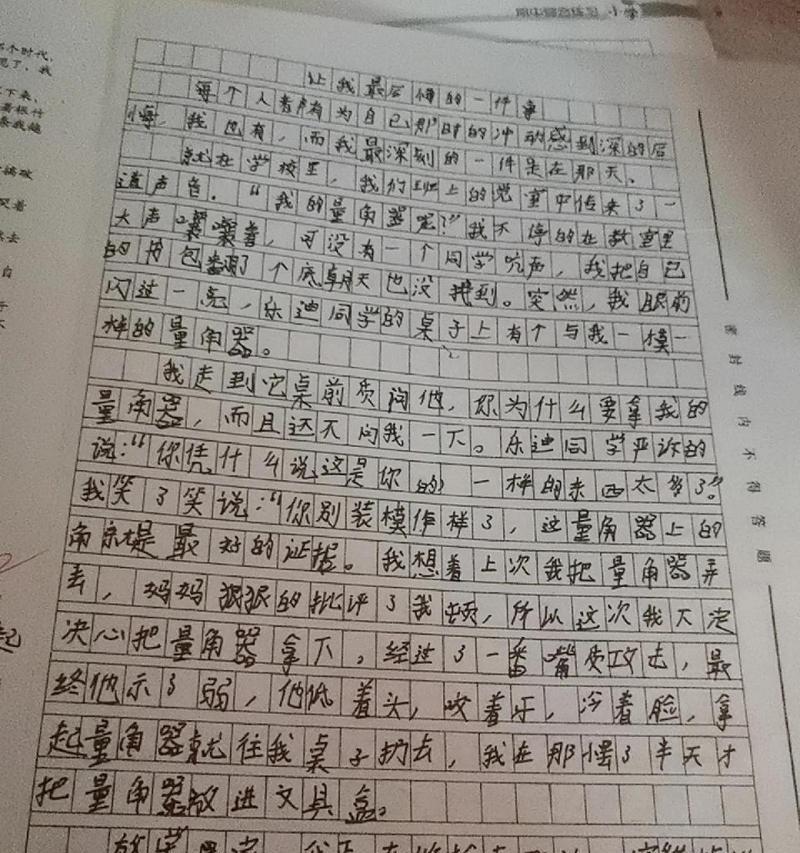 期中综合练习 小学
个时代,
了,我
下来,
让我最后悔的一件事
每个人都有为自己那时的冲动感到深的后
悔,我也有,而我最深刻的一件是在那天。
就在学校里,我们班上的觉室中传来了一
道声音.“我的量角器呢?”我不停的在教室里
大声嚷嚷着,可没有一个同学吭声,我把自己
的书包翻了个底朝天也没找到。突然,我眼前
闪过一亮,乐迪同学的桌子上有个与我一模一
样的量角器。
我走到它桌前质问他,你为什么要拿我的
量角器,而且还不问我一下。乐迪同学严诈的
说:“你凭什么说这是你的 一样的东西太多了。”
我笑了笑说:“你别装模作样了,这量角器上的
角 是最好的证据。我想着上次我把量角器弄
去,妈妈狠狠的批评了我 顿,所以这次我下定
决心把量角器拿下。经过了一番嘴 攻击,最
终他示了弱,他低着头,咬着牙,冷着脸,拿
起量角器就往我桌子扔去,我在那 了半天才
把量角器放进文具盒。
密封线内不得答题